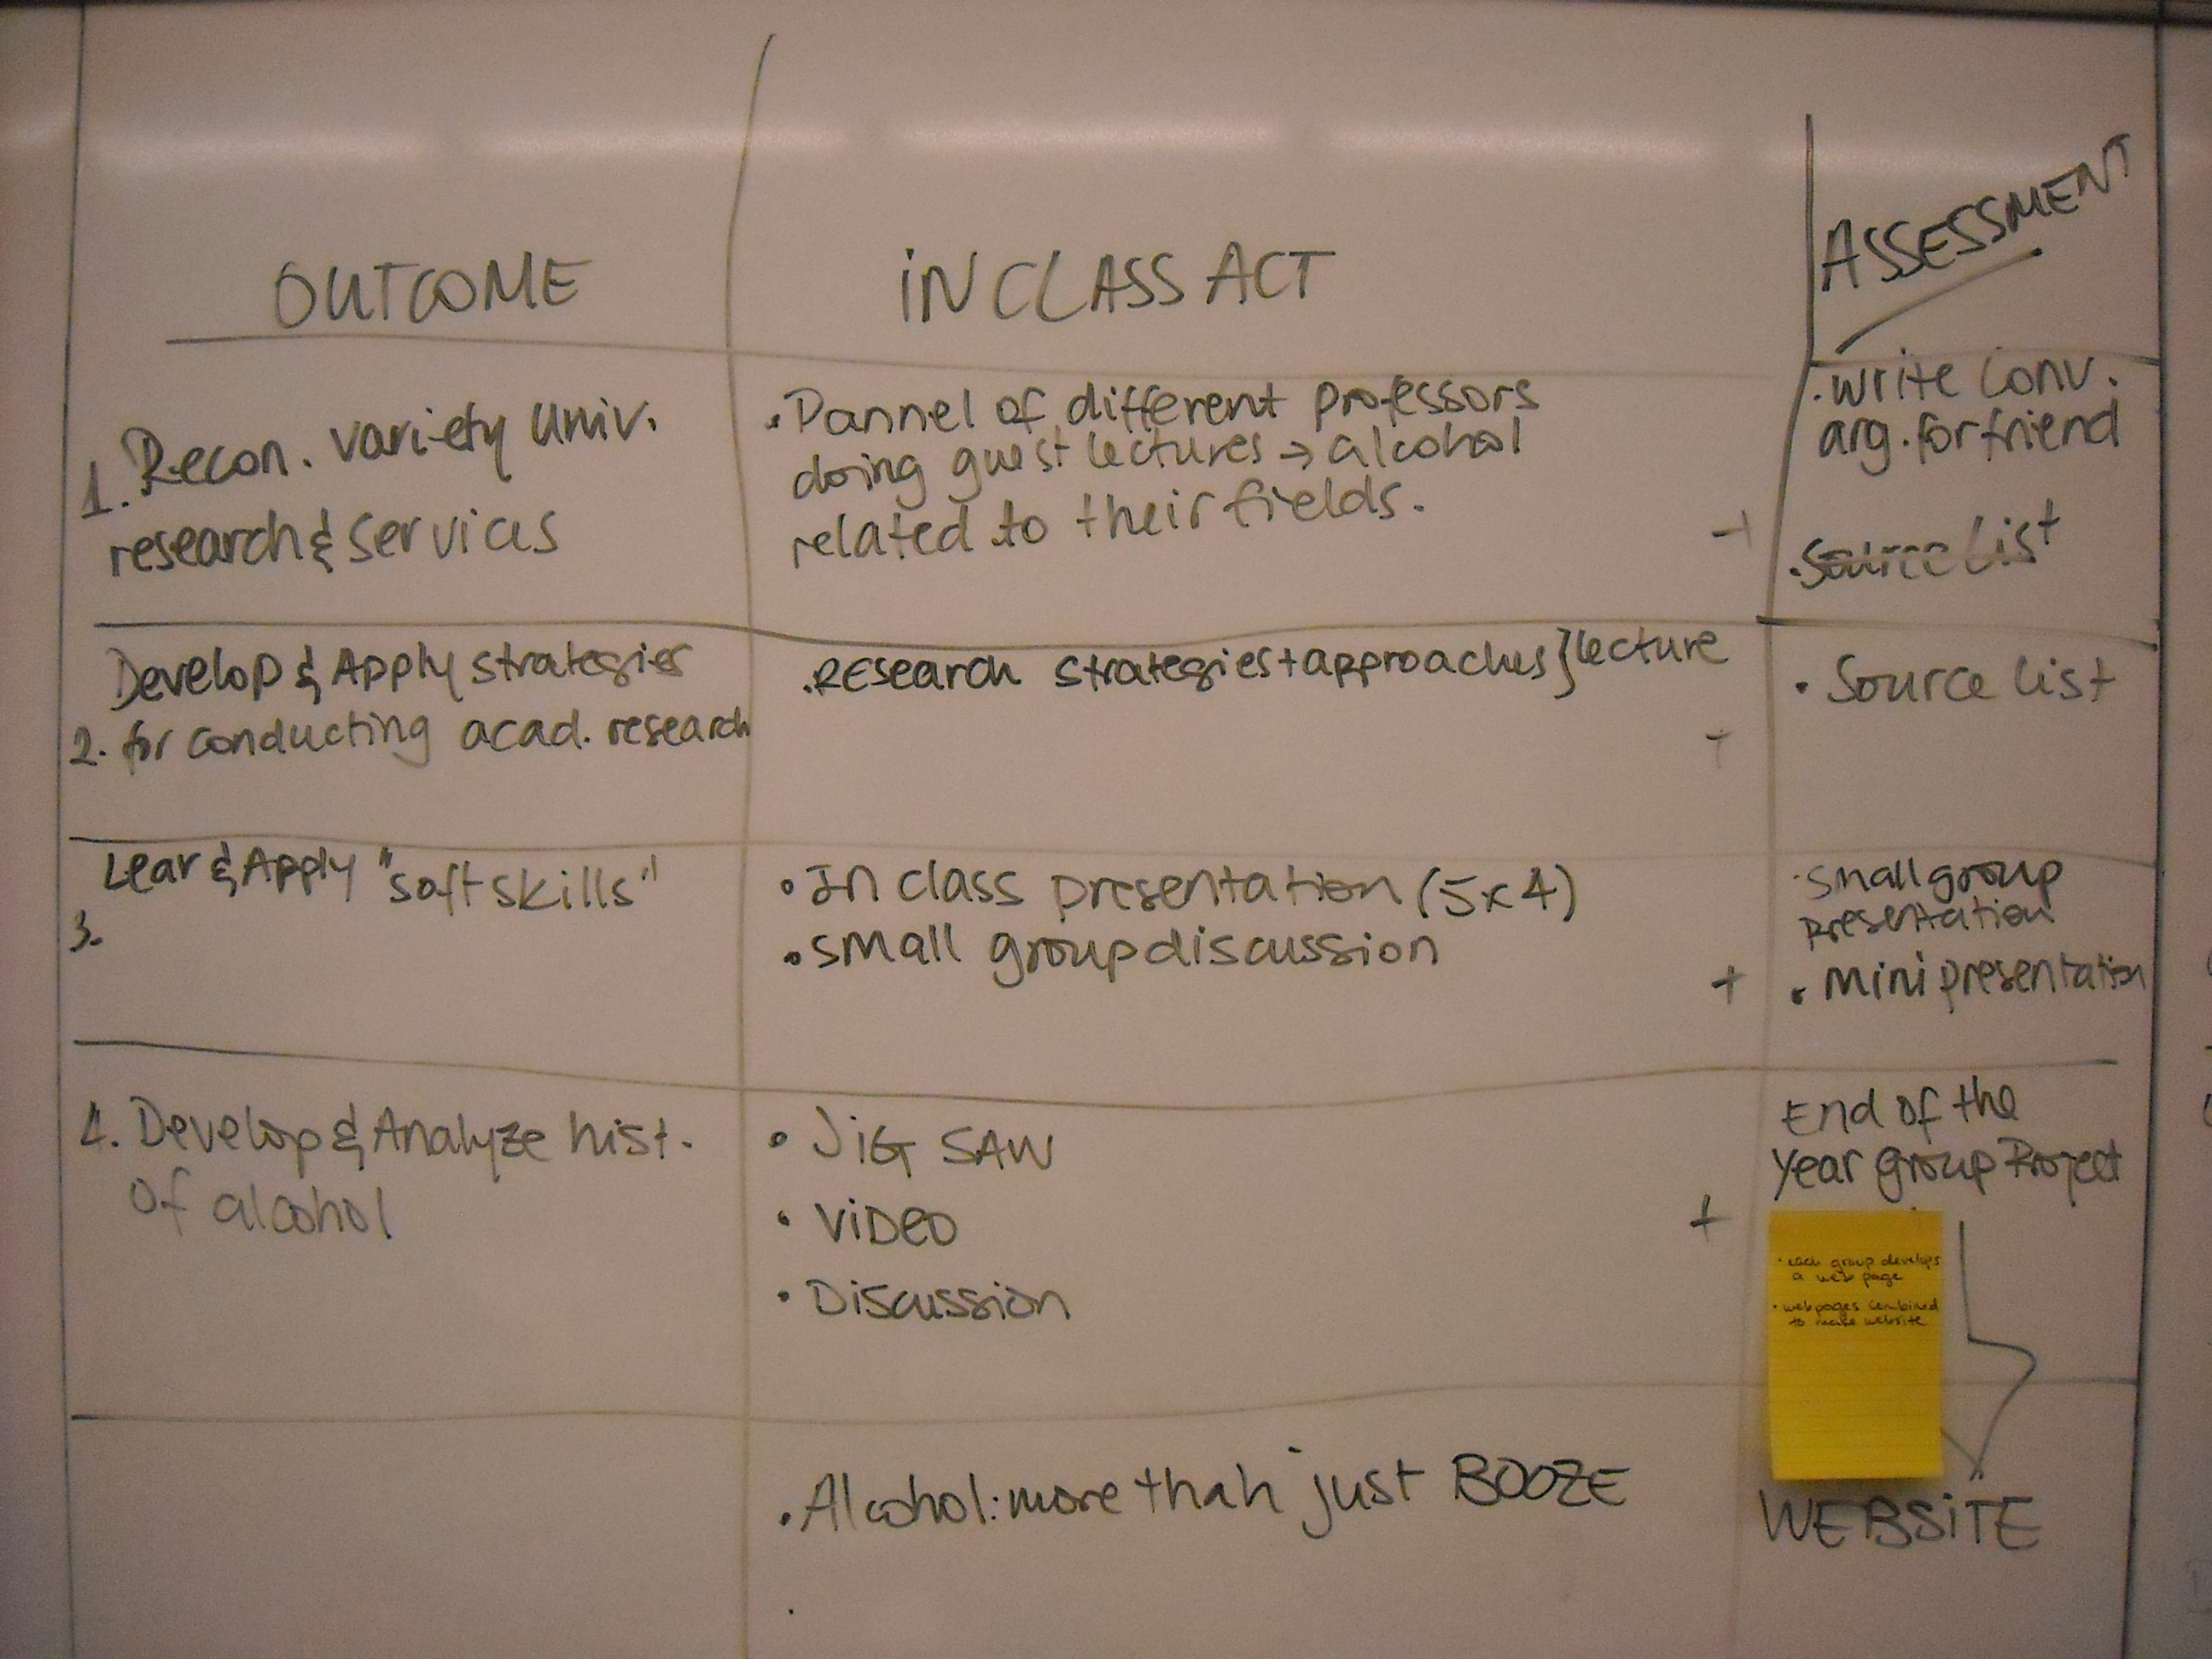 OUTCOME
IN CLASS ACT
ASSESSMENT
1. Recon. variety Univ.
research & services
• Pannel of different professors
doing guest lectures → alcohol
related to their fields.
+
• write conv.
arg. for friend
• Source list
Develop & Apply strategies
2. for conducting acad. research
• Research strategies + approaches } lecture
+
• Source list
Lear & Apply "soft skills"
3.
• In class presentation (5x4)
• small group discussion
+
• small group
presentation
• mini presentation
4. Develop & Analyze hist.
of alcohol
• JIG SAW
• VIDEO
• Discussion
+
End of the
year group Project
• each group develops
a web page
• webpages combined
to make website
• Alcohol: more than just BOOZE
WEBSITE